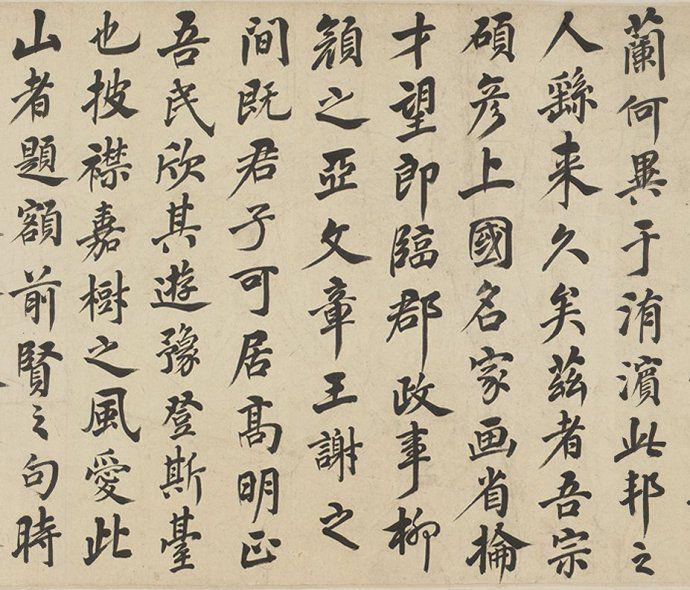 蘭何異于洧濱此邦之
人繇来久矣茲者吾宗
碩彦上國名家画省掄
才望即臨郡政事柳
顔之亞文章王謝之
間既君子可居高明正
吾民欣其遊豫登斯臺
也披襟嘉樹之風愛此
山者題額前賢之句時